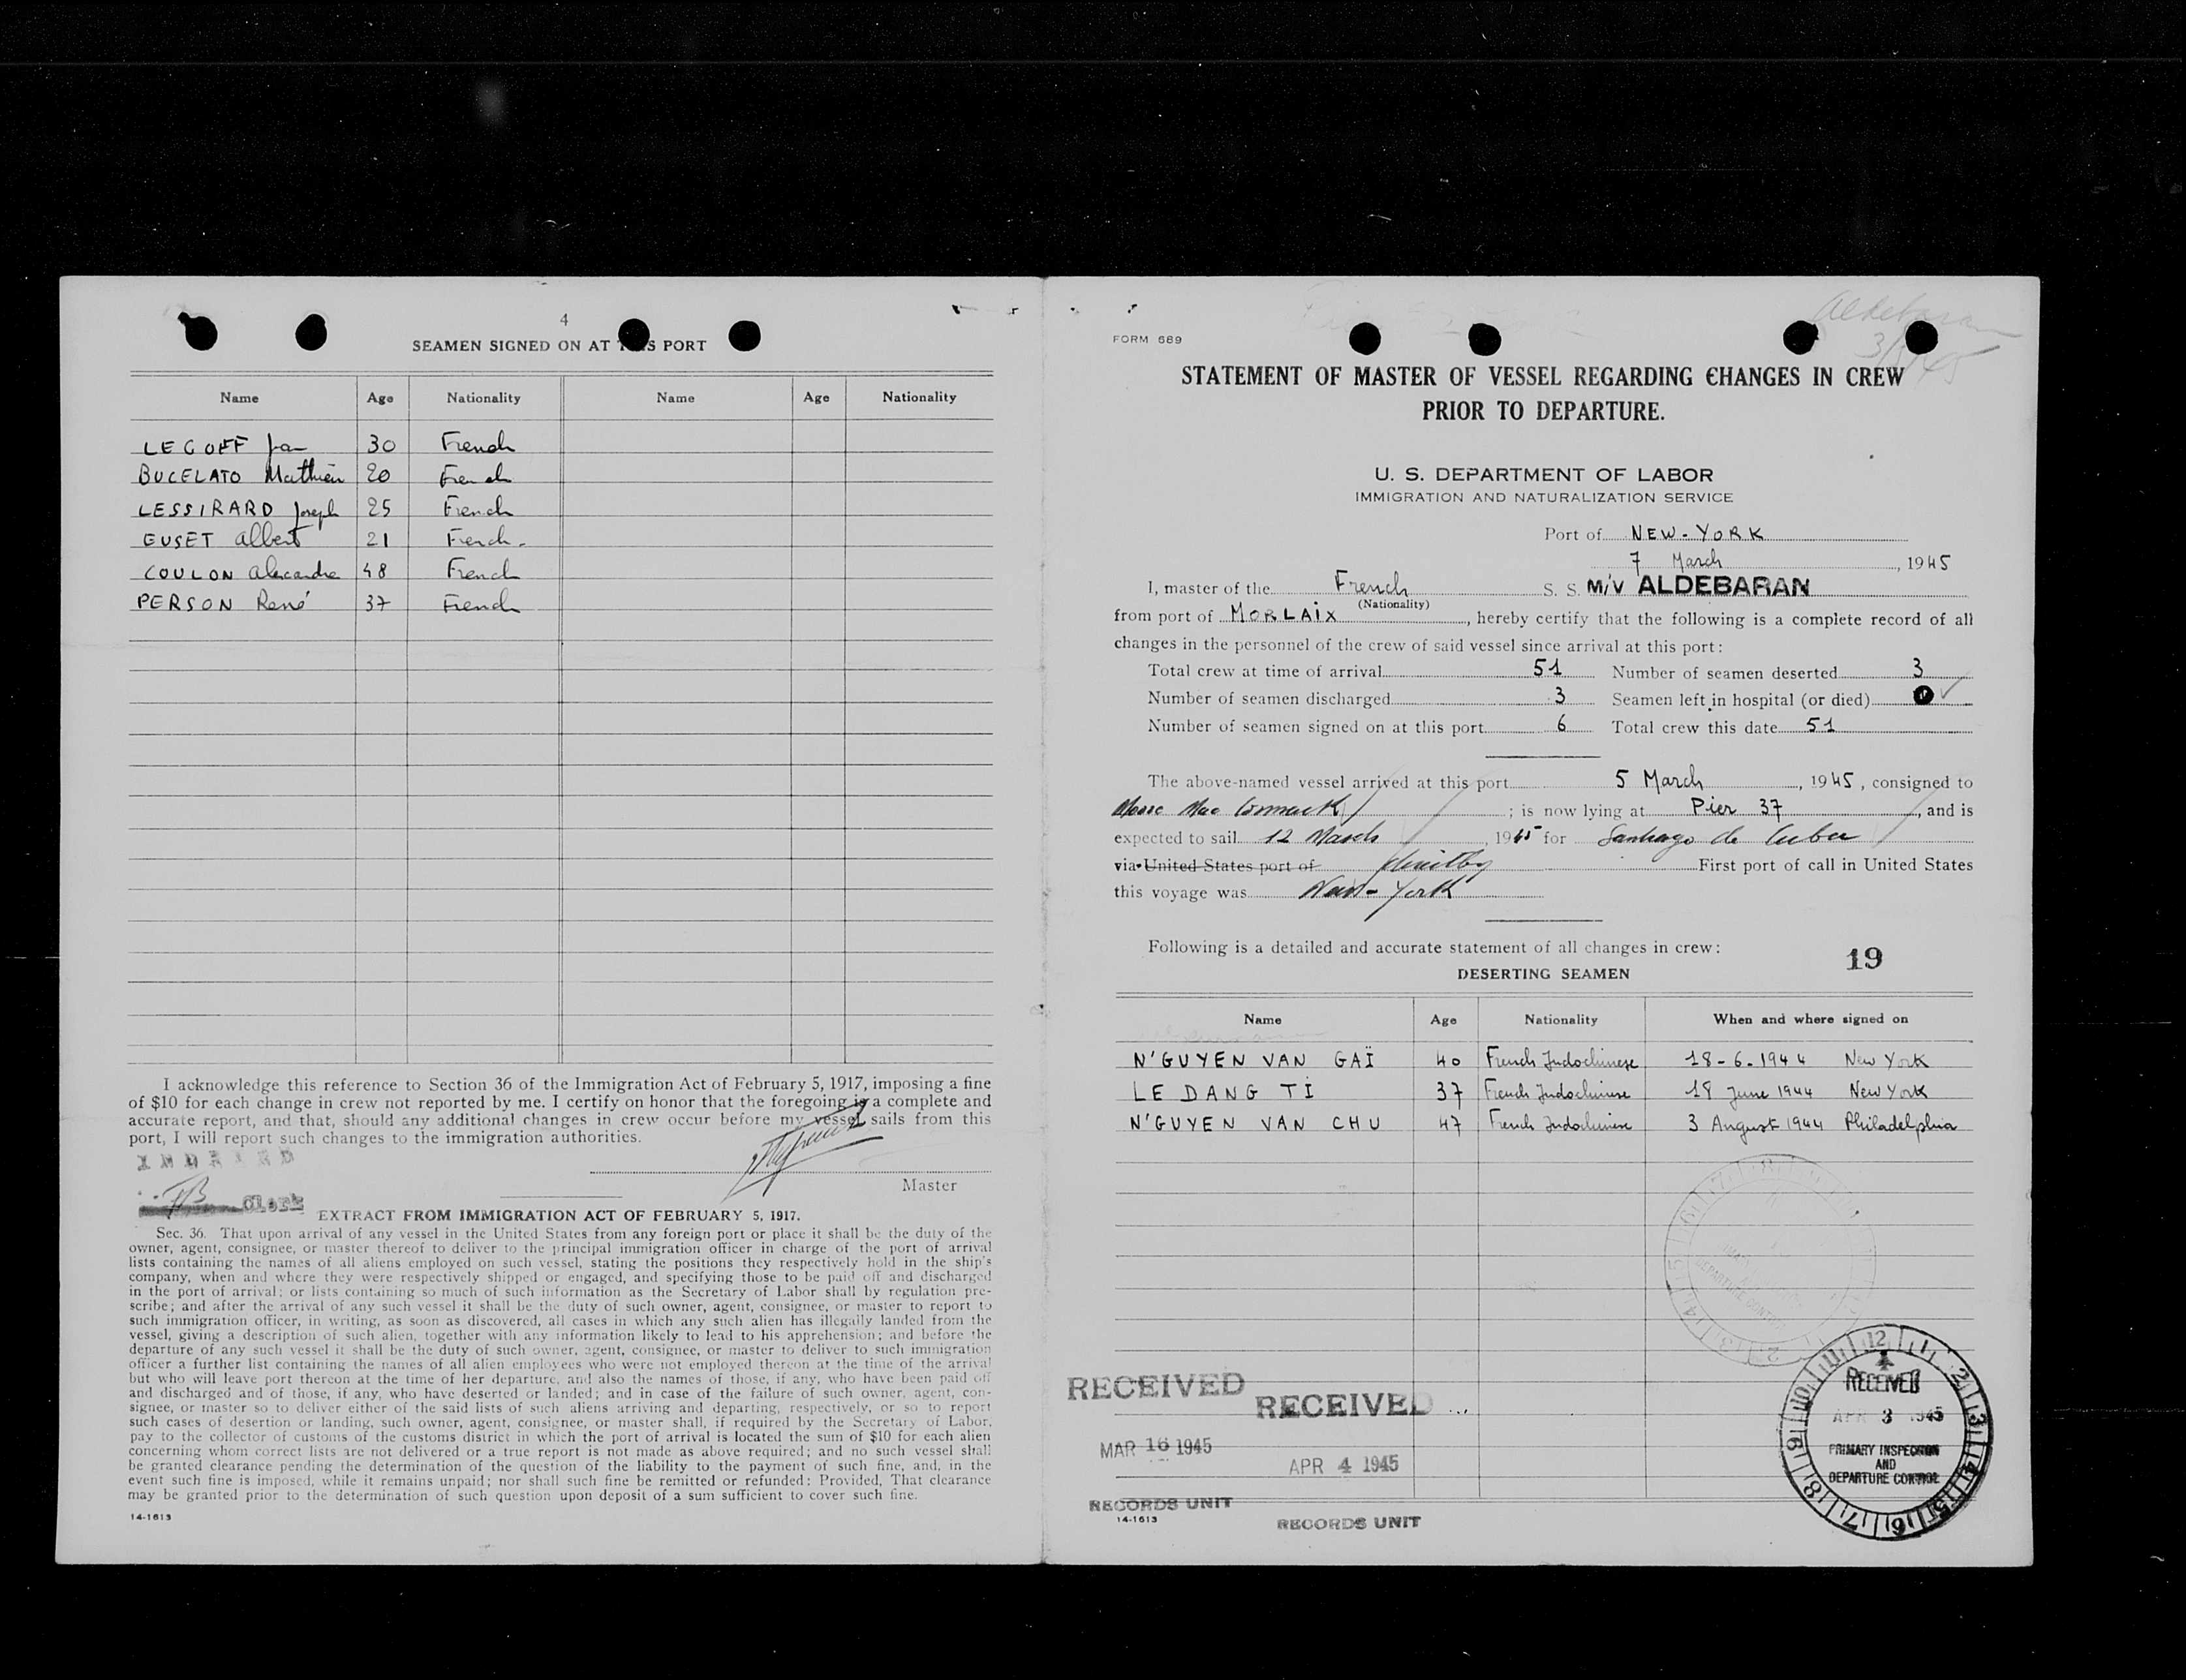 4
SEAMEN SIGNED ON AT THIS PORT
Name Age Nationality Name Age Nationality
LEGOFF Jean 30 French
BUCELATO Mathieu 20 French
LESSIRARD Joseph 25 French
EUSET Albert 21 French.
COULON Alexandre 48 French
PERSON René 37 French
I acknowledge this reference to Section 36 of the Immigration Act of February 5, 1917, imposing a fine
of $10 for each change in crew not reported by me. I certify on honor that the foregoing is a complete and
accurate report, and that, should any additional changes in crew occur before my vessel sails from this
port, I will report such changes to the immigration authorities.
INDEXED
Master
Clerk
EXTRACT FROM IMMIGRATION ACT OF FEBRUARY 5, 1917.
Sec. 36. That upon arrival of any vessel in the United States from any foreign port or place it shall be the duty of the
owner, agent, consignee, or master thereof to deliver to the principal immigration officer in charge of the port of arrival
lists containing the names of all aliens employed on such vessel, stating the positions they respectively hold in the ship's
company, when and where they were respectively shipped or engaged, and specifying those to be paid off and discharged
in the port of arrival; or lists containing so much of such information as the Secretary of Labor shall by regulation pre-
scribe; and after the arrival of any such vessel it shall be the duty of such owner, agent, consignee, or master to report to
such immigration officer, in writing, as soon as discovered, all cases in which any such alien has illegally landed from the
vessel, giving a description of such alien, together with any information likely to lead to his apprehension; and before the
departure of any such vessel it shall be the duty of such owner, agent, consignee, or master to deliver to such immigration
officer a further list containing the names of all alien employees who were not employed thereon at the time of the arrival
but who will leave port thereon at the time of her departure, and also the names of those, if any, who have been paid off
and discharged and of those, if any, who have deserted or landed; and in case of the failure of such owner, agent, con-
signee, or master so to deliver either of the said lists of such aliens arriving and departing, respectively, or so to report
such cases of desertion or landing, such owner, agent, consignee, or master shall, if required by the Secretary of Labor,
pay to the collector of customs of the customs district in which the port of arrival is located the sum of $10 for each alien
concerning whom correct lists are not delivered or a true report is not made as above required; and no such vessel shall
be granted clearance pending the determination of the question of the liability to the payment of such fine, and, in the
event such fine is imposed, while it remains unpaid; nor shall such fine be remitted or refunded: Provided, That clearance
may be granted prior to the determination of such question upon deposit of a sum sufficient to cover such fine.
14-1613
Aldebaran
FORM 689
STATEMENT OF MASTER OF VESSEL REGARDING CHANGES IN CREW
PRIOR TO DEPARTURE.
U. S. DEPARTMENT OF LABOR
IMMIGRATION AND NATURALIZATION SERVICE
Port of NEW-YORK
7 March, 1945
I, master of the French S. S. M/V ALDEBARAN
(Nationality)
from port of MORLAIX, hereby certify that the following is a complete record of all
changes in the personnel of the crew of said vessel since arrival at this port:
Total crew at time of arrival 51 Number of seamen deserted 3
Number of seamen discharged 3 Seamen left in hospital (or died) 0
Number of seamen signed on at this port 6 Total crew this date 51
The above-named vessel arrived at this port 5 March, 1945, consigned to
Moore Mac Cormack; is now lying at Pier 37, and is
expected to sail 12 March 1945 for Santiago de Cuba
via United States port of First port of call in United States
this voyage was New-York
Following is a detailed and accurate statement of all changes in crew:
19
DESERTING SEAMEN
Name Age Nationality When and where signed on
N'GUYEN VAN GAÏ 40 French Indochinese 18-6-1944 New York
LE DANG TI 37 French Indochinese 18 June 1944 New York
N'GUYEN VAN CHU 47 French Indochinese 3 August 1944 Philadelphia
RECEIVED
MAR 16 1945
RECORDS UNIT
14-1613
RECEIVED
APR 4 1945
RECORDS UNIT
12 1 2 3 4 5 6 7 8 9 10 11
RECEIVED
APR 3 1945
PRIMARY INSPECTION
AND
DEPARTURE CONTROL